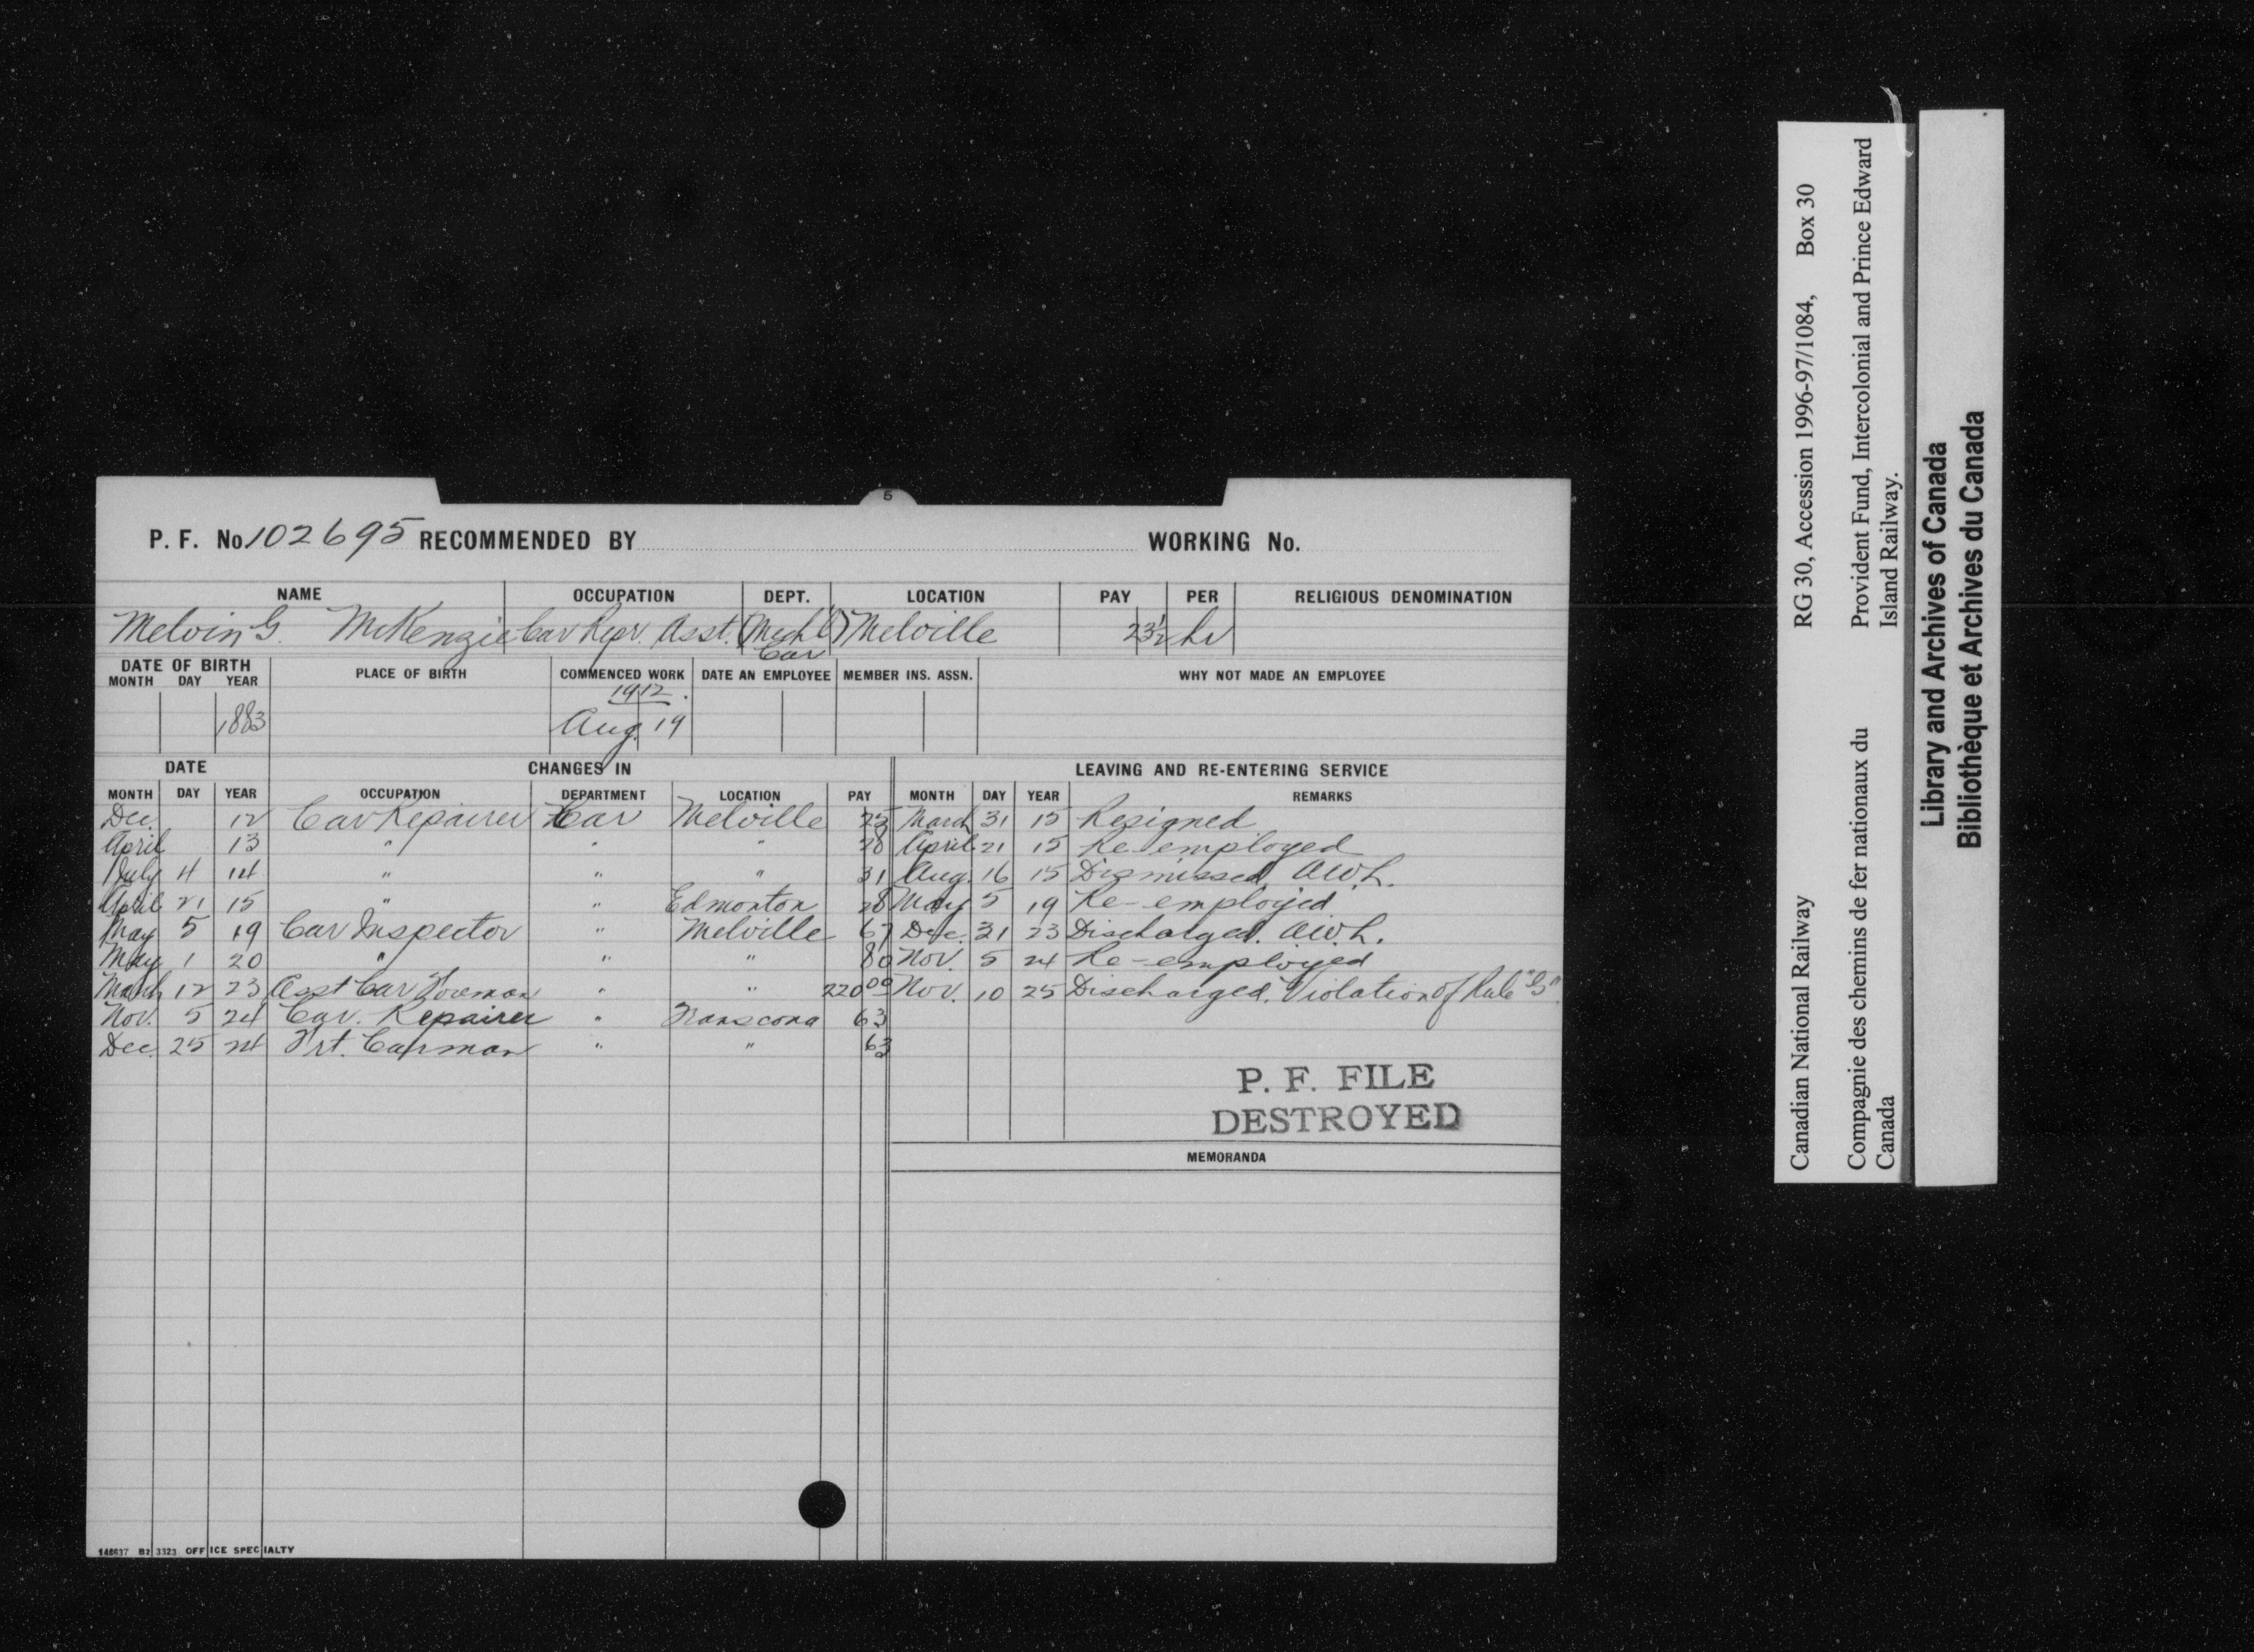 5
P. F. No. 102695 RECOMMENDED BY WORKING No.
NAME OCCUPATION DEPT. LOCATION PAY PER RELIGIOUS DENOMINATION
Melvin G. McKenzie Car Repr. Asst. (Mechl) Melville 23½ hr
Car
DATE OF BIRTH PLACE OF BIRTH COMMENCED WORK DATE AN EMPLOYEE MEMBER INS. ASSN. WHY NOT MADE AN EMPLOYEE
MONTH DAY YEAR
1912.
1883 Aug. 19
DATE CHANGES IN LEAVING AND RE-ENTERING SERVICE
MONTH DAY YEAR OCCUPATION DEPARTMENT LOCATION PAY MONTH DAY YEAR REMARKS
Dec. 12 Car Repairer Car Melville 25 March 31 15 Resigned
April 13 " " " 28 April 21 15 Re employed
July 4 14 " " " 31 Aug. 16 15 Dismissed AWL.
April 21 15 " " Edmonton 28 May 5 19 Re-employed
May 5 19 Car Inspector " Melville 67 Dec. 31 23 Discharged. AWL.
May 1 20 " " " 80 Nov. 5 24 Re-employed
March 12 23 Asst Car Foreman " " 220 00 Nov. 10 25 Discharged. Violation of Rule "G"
Nov. 5 24 Car. Repairer " Transcona 63
Dec. 25 24 Frt. Carman " " 63
P. F. FILE
DESTROYED
MEMORANDA
146637 B2 3323 OFFICE SPECIALTY
Canadian National Railway RG 30, Accession 1996-97/1084, Box 30
Compagnie des chemins de fer nationaux du Provident Fund, Intercolonial and Prince Edward
Canada Island Railway.
Library and Archives of Canada
Bibliothèque et Archives du Canada